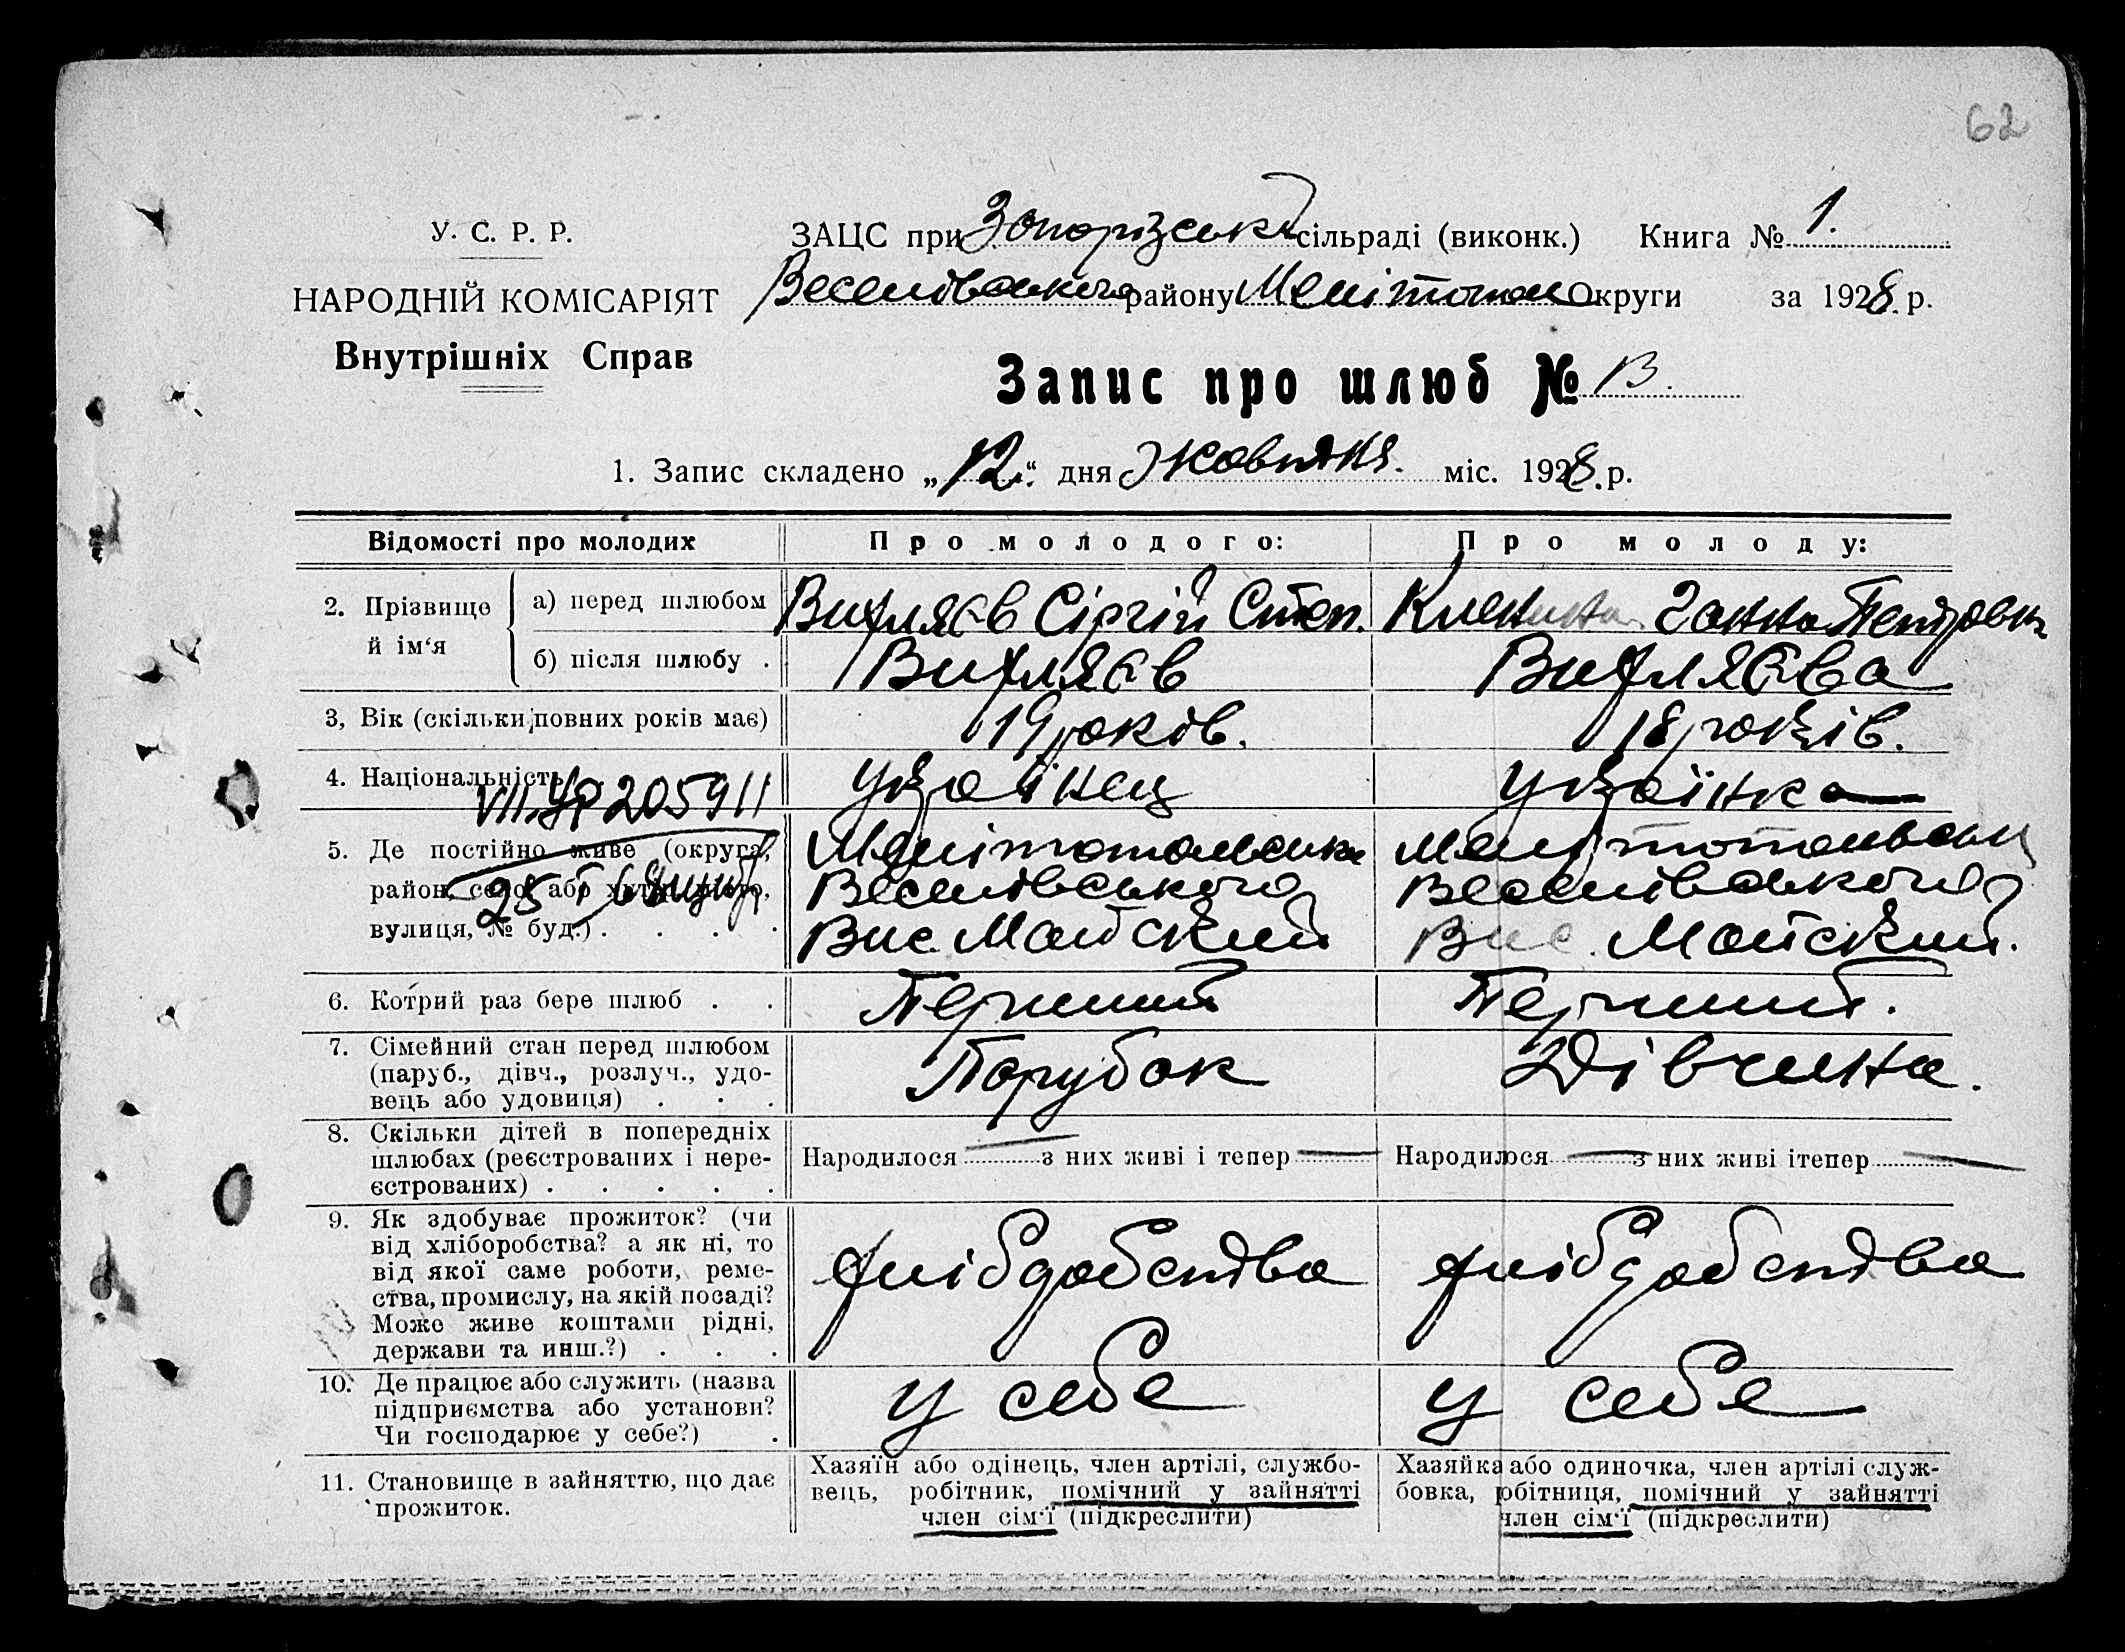 62
У. С. Р. Р.
НАРОДНІЙ КОМІСАРІЯТ
Внутрішніх Справ
ЗАЦС при Запорізській сільраді (виконк.) Книга № 1.
Веселівського району Мелітопол Округи за 1928. р.
Запис про шлюб № 13.
1. Запис складено „12“ дня Жовтня. міс. 1928. р.
Відомості про молодих
Про молодого:
Про молоду:
2. Прізвище й ім‘я
а) перед шлюбом
Вихляєв Сіргій Степ.
Ганна Петровн
б) після шлюбу .
Вихляєв
Вихляєва
3, Вік (скільки повних років має)
19 років.
18 років.
4. Національність
Українец
Українка
VII УР 205911
5. Де постійно живе (округа,
район, село, або хутір, місто,
вулиця, № буд.) . . . .
25
Мелітопольськ
Веселівського
Вис. Майский
Мелітопольськ
Веселівського
Вис. Майский.
6. Котрий раз бере шлюб . .
Перший
Перший.
7. Сімейний стан перед шлюбом
(паруб., дівч., розлуч., удо-
вець або удовиця) . . .
Парубок
Дівчина.
8. Скільки дітей в попередніх
шлюбах (реєстрованих і нере-
єстрованих) . . . . .
Народилося — з них живі і тепер —
Народилося — з них живі ітепер —
9. Як здобуває прожиток? (чи
від хліборобства? а як ні, то
від якої саме роботи, реме-
ства, промислу, на якій посаді?
Може живе коштами рідні,
держави та инш.?) . . .
хлібробства
хлібробства
10. Де працює або служить (назва
підприємства або установи?
Чи господарює у себе?) .
у себе
у себе
11. Становище в зайняттю, що дає
прожиток.
Хазяїн або одінець, член артілі, службо-
вець, робітник, помічний у зайнятті
член сім‘ї (підкреслити)
Хазяйка або одиночка, член артілі служ-
бовка, робітниця, помічний у зайнятті
член сім‘ї (підкреслити)